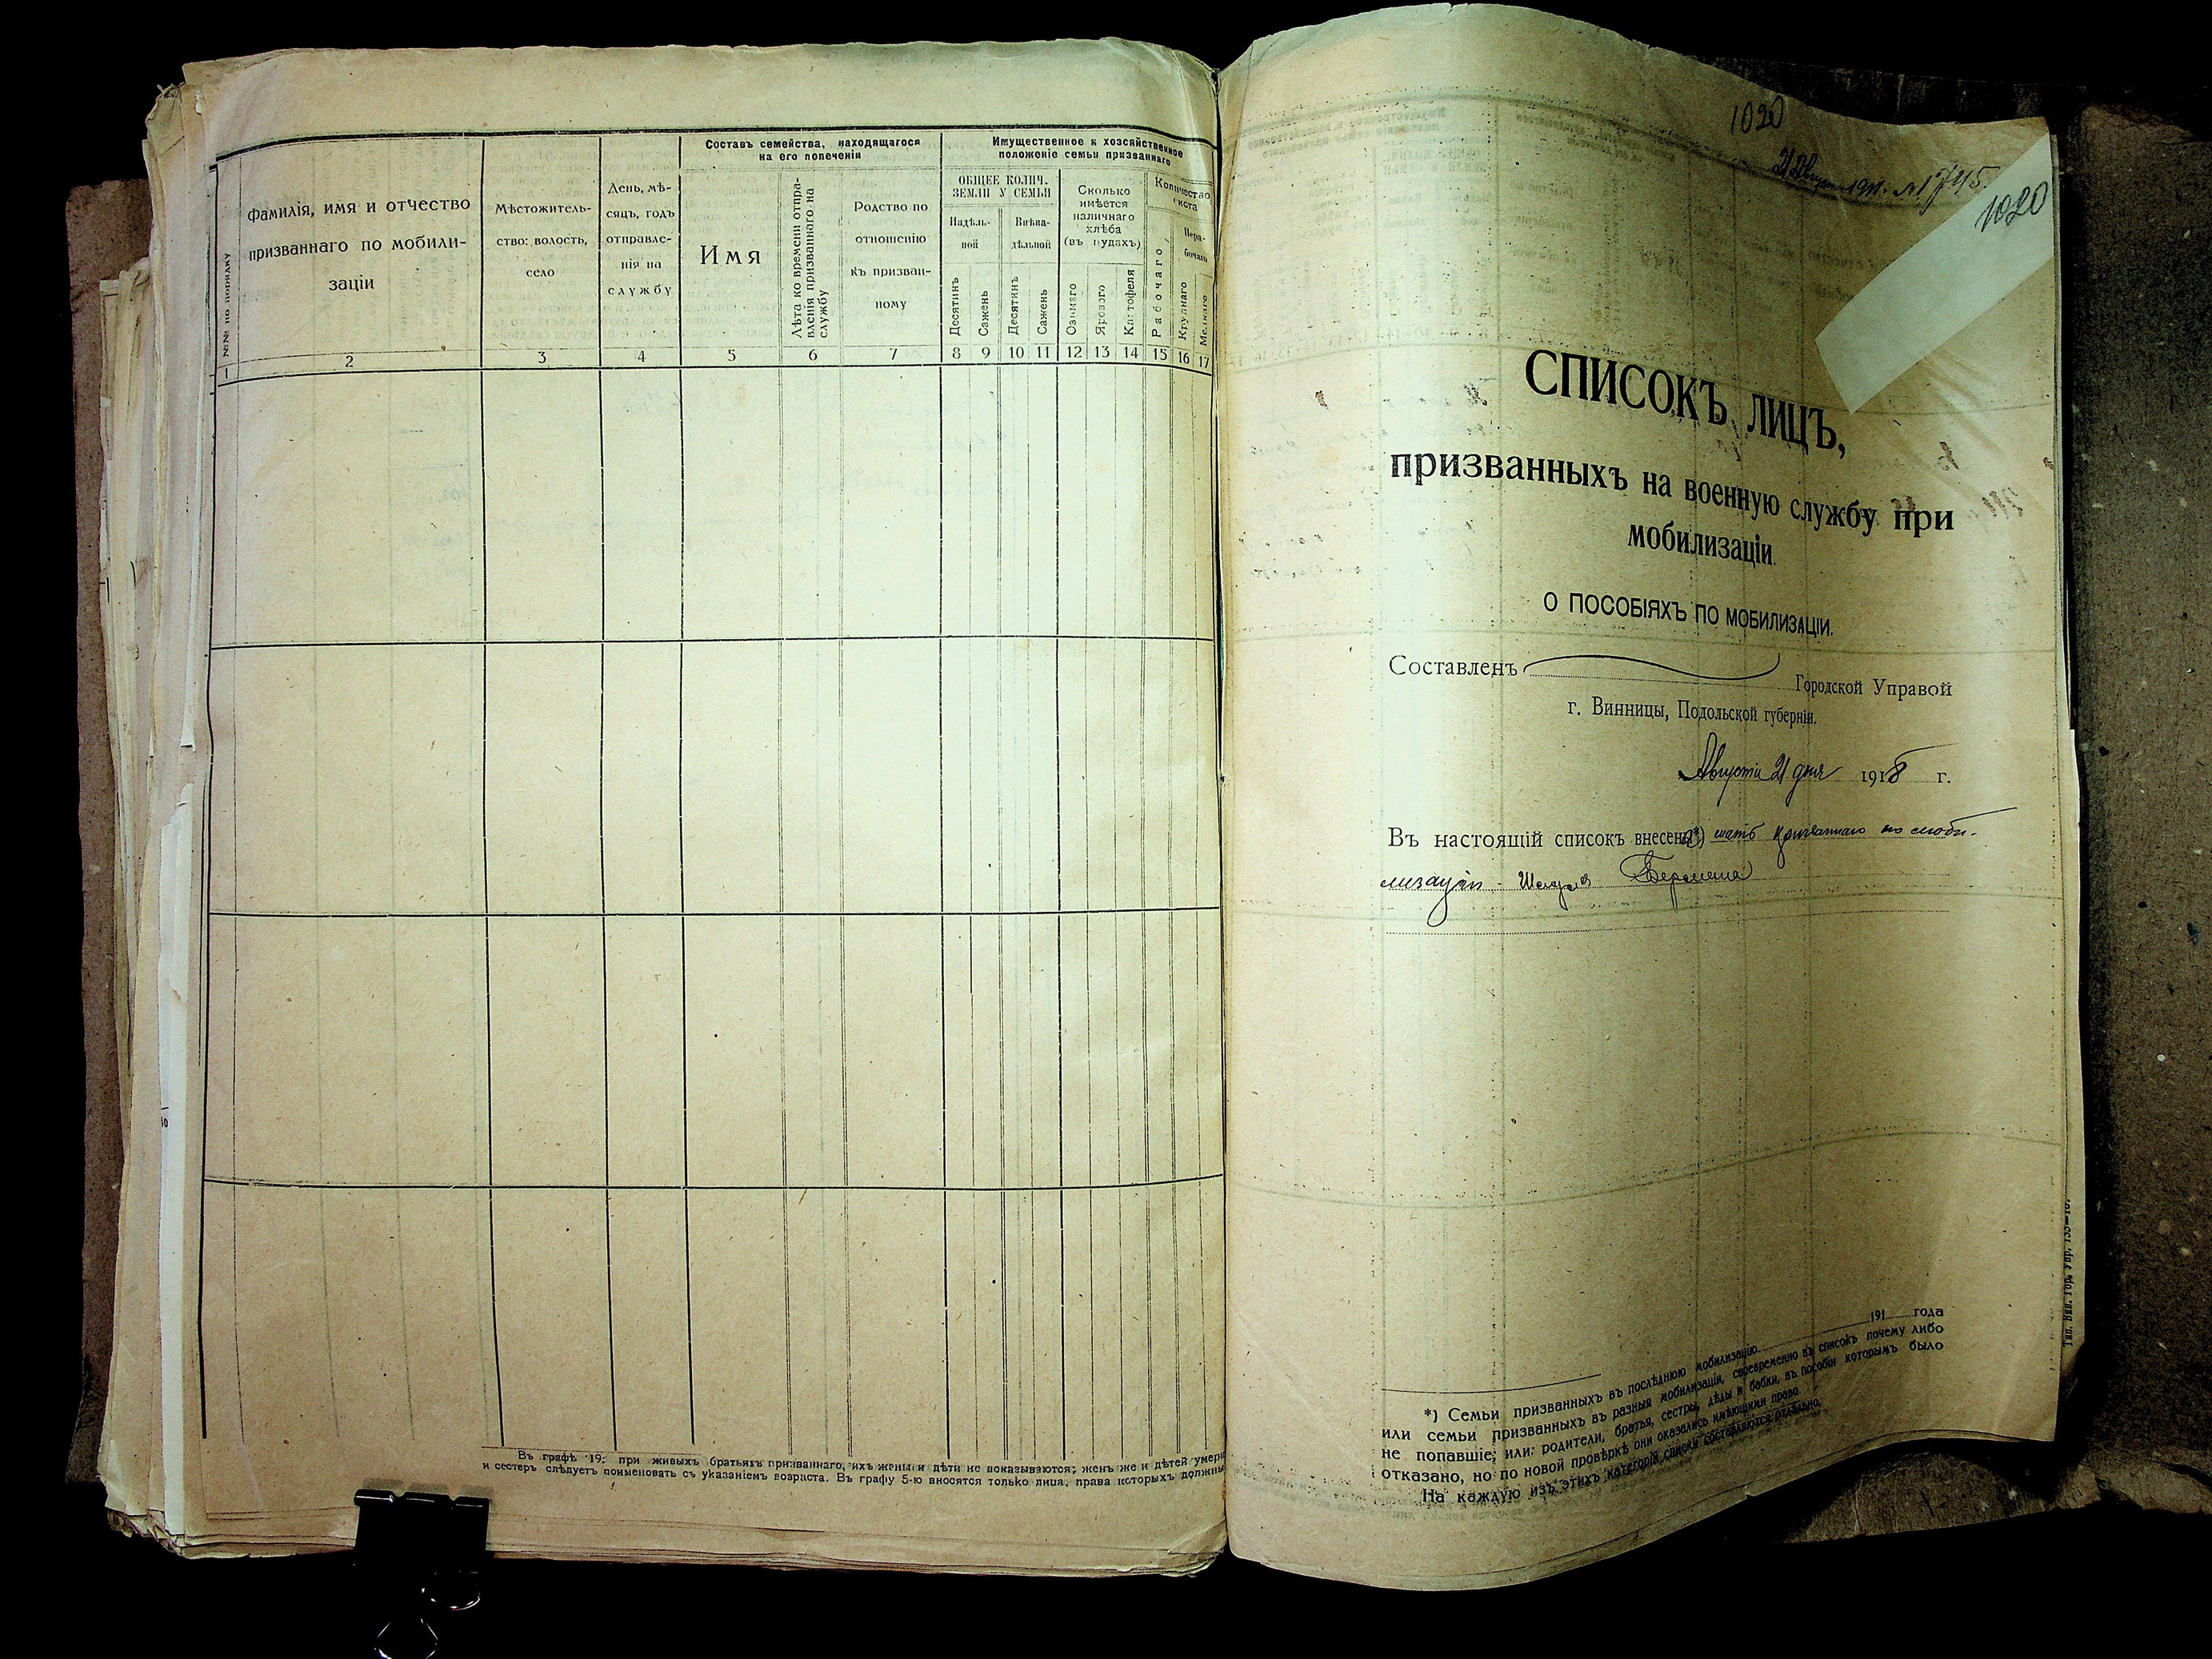 Составъ семейства, находящагося
на его попеченіи
Имущественное и хозяйственное
положеніе семьи призваннаго
№№ по порядку
Фамилія, имя и отчество
призваннаго по мобили-
заціи
Мѣстожитель-
ство: волость,
село
День, мѣ-
сяцъ, годъ
отправле-
нія на
службу
Имя
Лѣта ко времени отпра-
вленія призваннаго на
службу
Родство по
отношенію
къ призван-
ному
ОБЩЕЕ КОЛИЧ.
ЗЕМЛИ У СЕМЬИ
Надѣль-
ной
Внѣна-
дѣльной
Десятинъ
Сажень
Десятинъ
Сажень
Сколько
имѣется
наличнаго
хлѣба
(въ пудахъ)
Озимаго
Ярового
Картофеля
Количество
скота
Рабочаго
Нера-
бочаго
Крупнаго
Мелкаго
1 2 3 4 5 6 7 8 9 10 11 12 13 14 15 16 17
Въ графѣ 19: при живыхъ братьяхъ призваннаго, ихъ жены и дѣти не показываются; женъ же и дѣтей умерш
и сестеръ слѣдуетъ поименовать съ указаніемъ возраста. Въ графу 5-ю вносятся только лица, права которыхъ должны
1020
21 Августа 191 г. № 1745.
1020
СПИСОКЪ ЛИЦЪ,
призванныхъ на военную службу при
мобилизаціи.
О ПОСОБІЯХЪ ПО МОБИЛИЗАЦІИ.
Составленъ Городской Управой
г. Винницы, Подольской губерніи.
Августа 21 дня 1918 г.
Въ настоящій списокъ внесена*) мать призваннаго по моби-
лизаціи - Бермана
191 года
*) Семьи призванныхъ въ послѣднюю мобилизацію.
или семьи призванныхъ въ разныя мобилизаціи, своевременно въ списокъ почему либо
не попавшіе; или: родители, братья, сестры, дѣды и бабки, въ пособіи которымъ было
отказано, но по новой провѣркѣ они оказались имѣющими право.
На каждую изъ этихъ категорій списки составляются отдѣльно.
Тип. Вин. Гор. Упр.